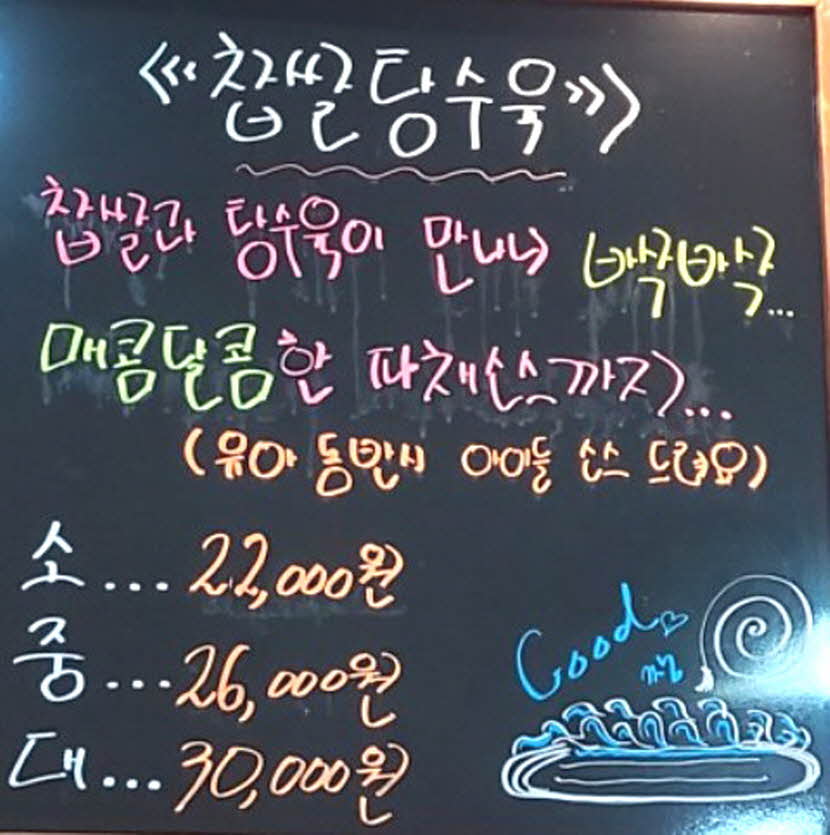 <<"찹쌀탕수육">>
찹쌀과 탕수육이 만나 바삭바삭...
매콤달콤한 파채소스까지...
(유아 동반시 아이들 소스 드려요)
소...22,000원
중...26,000원
대...30,000원
Good♡